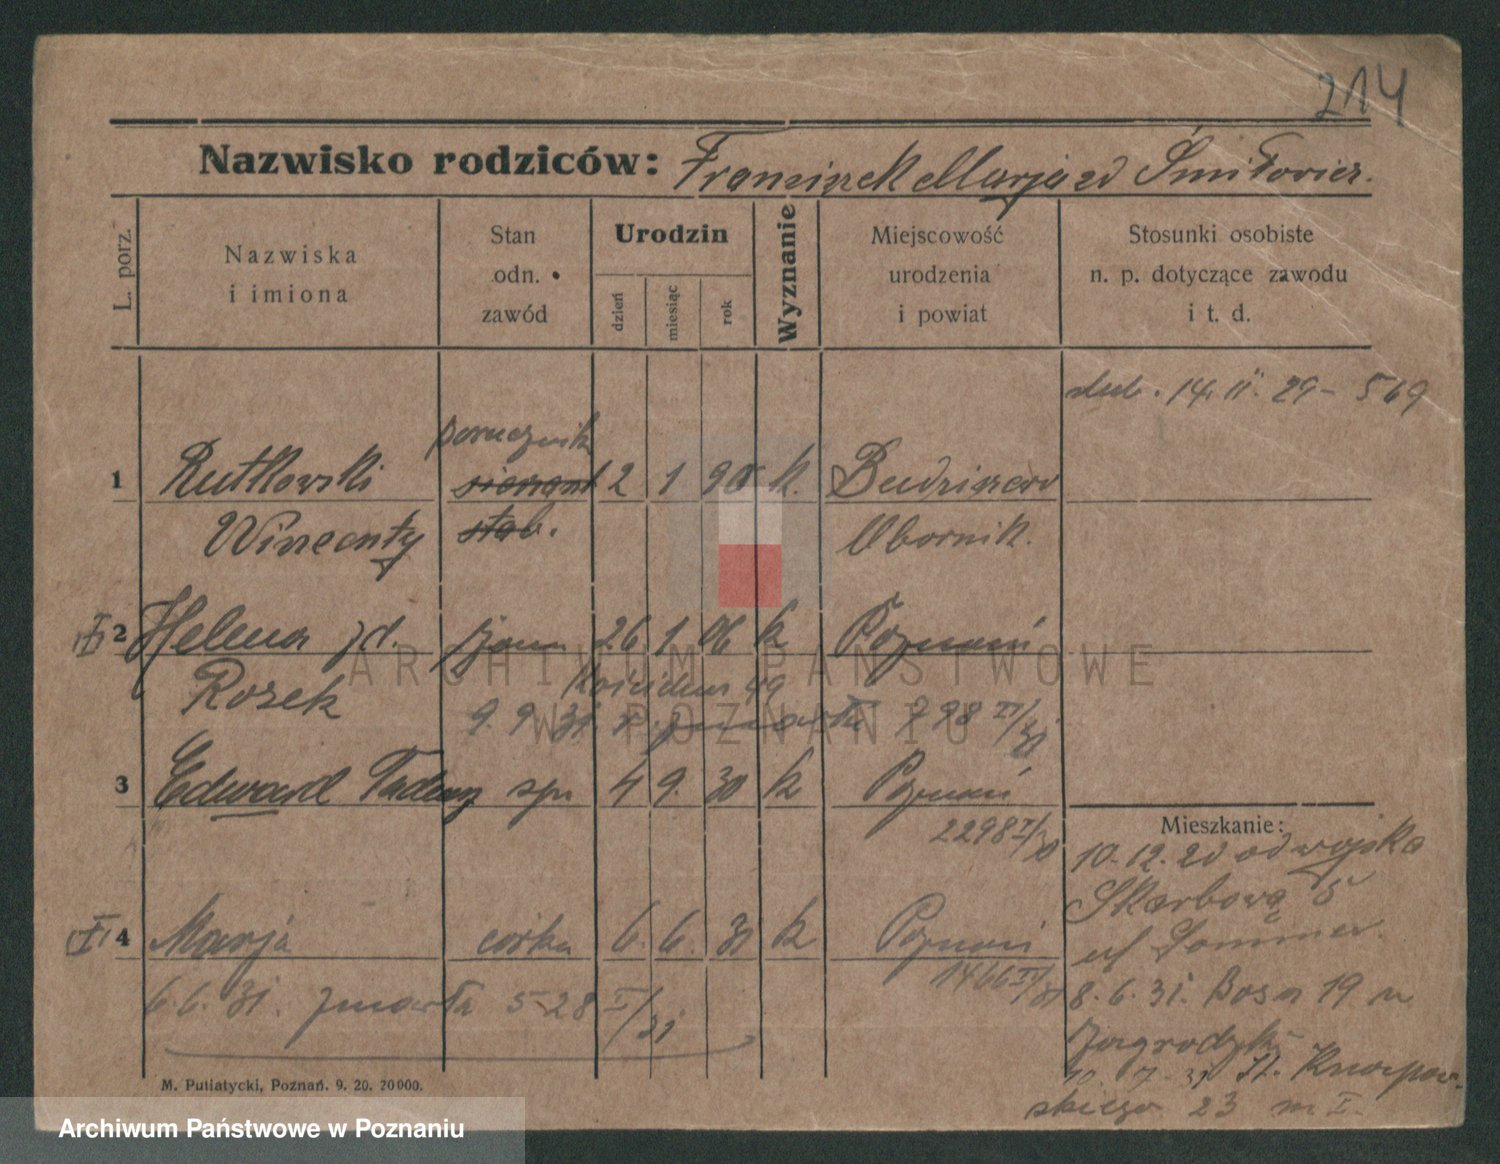 214
Nazwisko rodziców: Franciszek Marja zd Śmiłowicz.
L. porz.
Nazwiska
i imiona
Stan
odn.
zawód
Urodzin
dzień
miesiąc
rok
Wyznanie
Miejscowość
urodzenia
i powiat
Stosunki osobiste
n. p. dotyczące zawodu
i t. d.
ślub. 14. II. 29 - 569
porucznik
1 Rutkowski sierżant 2 1 90 k. Budziszewo
Wincenty stab. Obornik.
2 Helena zd. żona 26 1 06 k Poznań
Rosek
9. 9. 31. zmarła 798 II/31
3 Edward Tadeusz syn 4 9. 30 k Poznań
2298 I/30
Mieszkanie:
10. 12. 20 od wojska
Skarbowa 5
4 Marja córka 6. 6. 31 k Poznań
1466 II/31
6. 6. 31. zmarła 528 I/31
8. 6. 31. Bosa 19 u
Zagrodzki
10. 7. 31 Sł. Knapow-
skiego 23 m I.
M. Putiatycki, Poznań. 9. 20. 20000.
ARCHIWUM PAŃSTWOWE
W POZNANIU
Archiwum Państwowe w Poznaniu